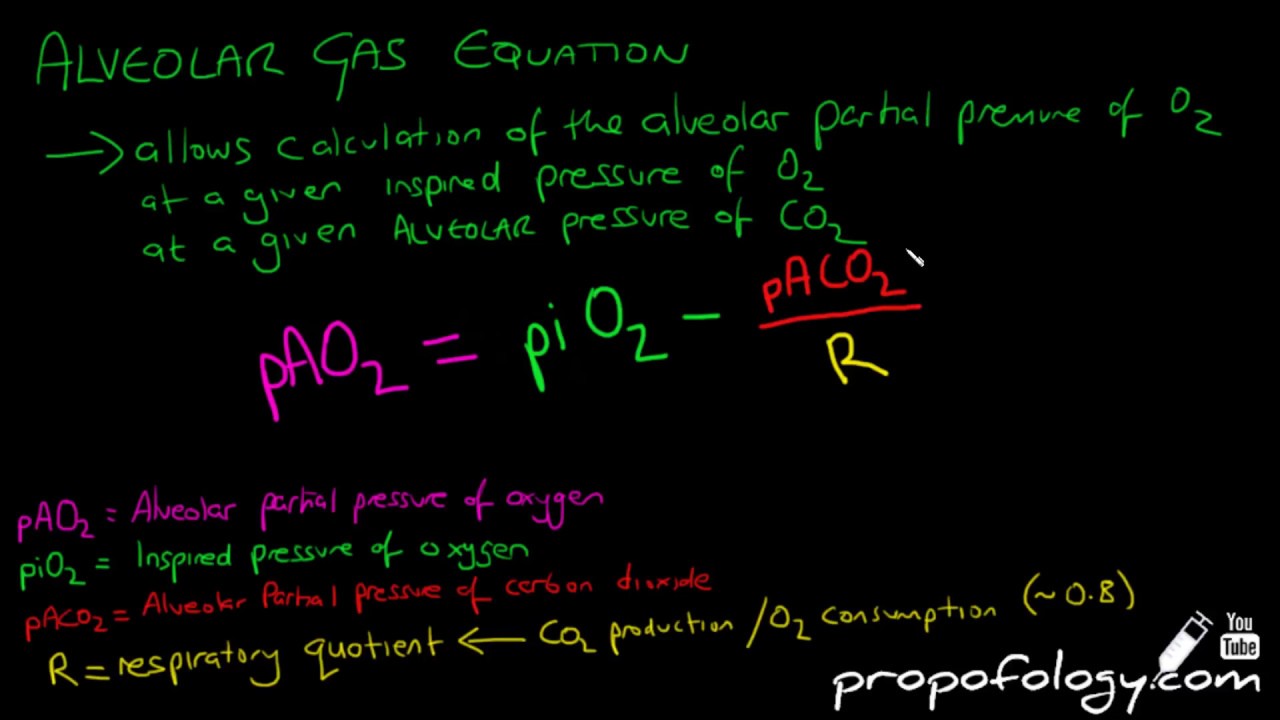 ALVEOLAR GAS EQUATION
→ allows calculation of the alveolar partial pressure of O₂
at a given inspired pressure of O₂
at a given ALVEOLAR pressure of CO₂
pAO₂ = piO₂ - pACO₂ / R
pAO₂ = Alveolar partial pressure of oxygen
piO₂ = Inspired pressure of oxygen
pACO₂ = Alveolar Partial pressure of carbon dioxide
R = respiratory quotient ← CO₂ production / O₂ consumption (~0.8)
You Tube
propofology.com